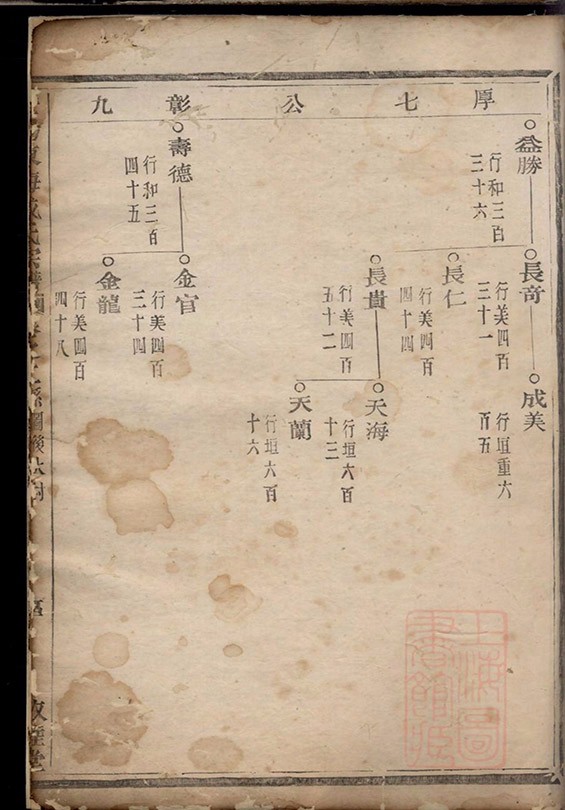 厚七公彰九
益勝
行和三百
三十六
長奇
行美四百
三十一
成美
行垣重六
百五
長仁
行美四百
四十四
長貴
行美四百
五十二
天海
行垣六百
十三
天蘭
行垣六百
十六
壽德
行和三百
四十五
金官
行美四百
三十四
金龍
行美四百
四十八
上海圖
書館藏